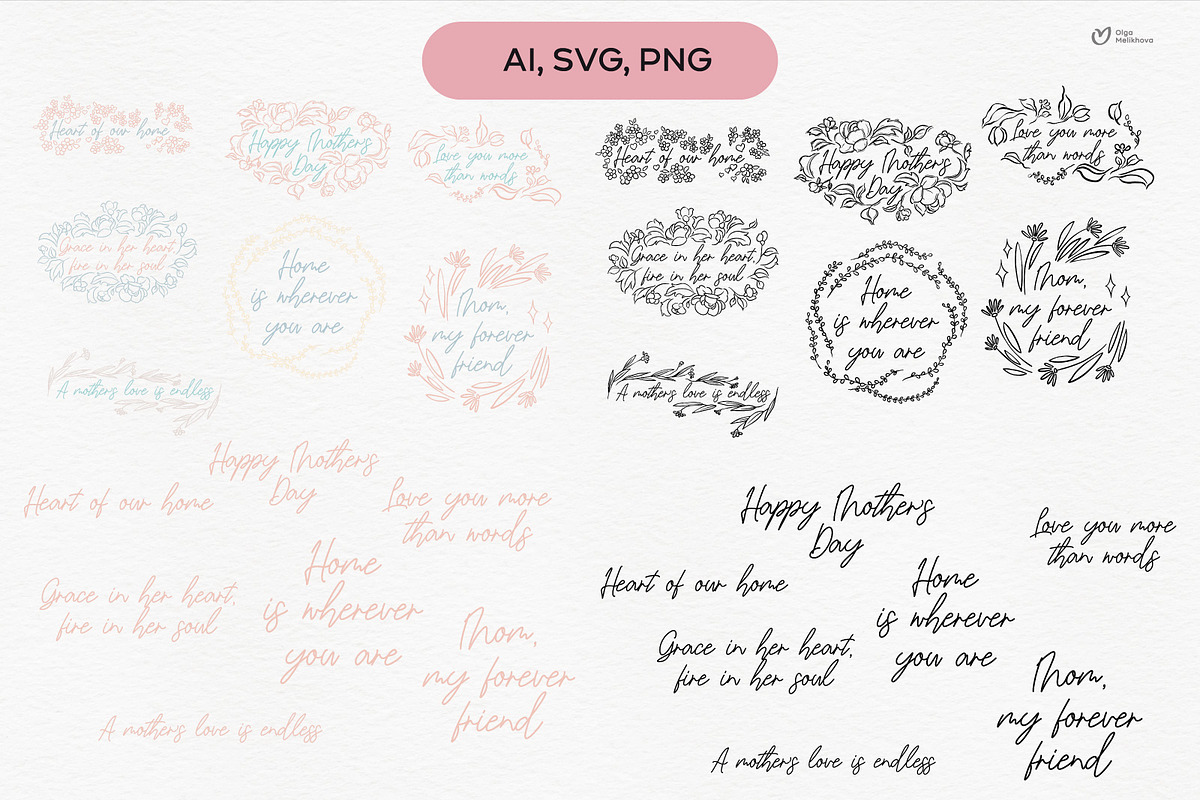 AI, SVG, PNG
Olga
Melikhova
Heart of our home
Happy Mothers
Day
Love you more
than words
Grace in her heart,
fire in her soul
Home
is wherever
you are
Mom,
my forever
friend
A mothers love is endless
Heart of our home
Happy Mothers
Day
Love you more
than words
Grace in her heart,
fire in her soul
Home
is wherever
you are
Mom,
my forever
friend
A mothers love is endless
Happy Mothers
Day
Heart of our home
Love you more
than words
Home
is wherever
you are
Grace in her heart,
fire in her soul
Mom,
my forever
friend
A mothers love is endless
Happy Mothers
Day
Love you more
than words
Heart of our home
Home
is wherever
you are
Grace in her heart,
fire in her soul
Mom,
my forever
friend
A mothers love is endless